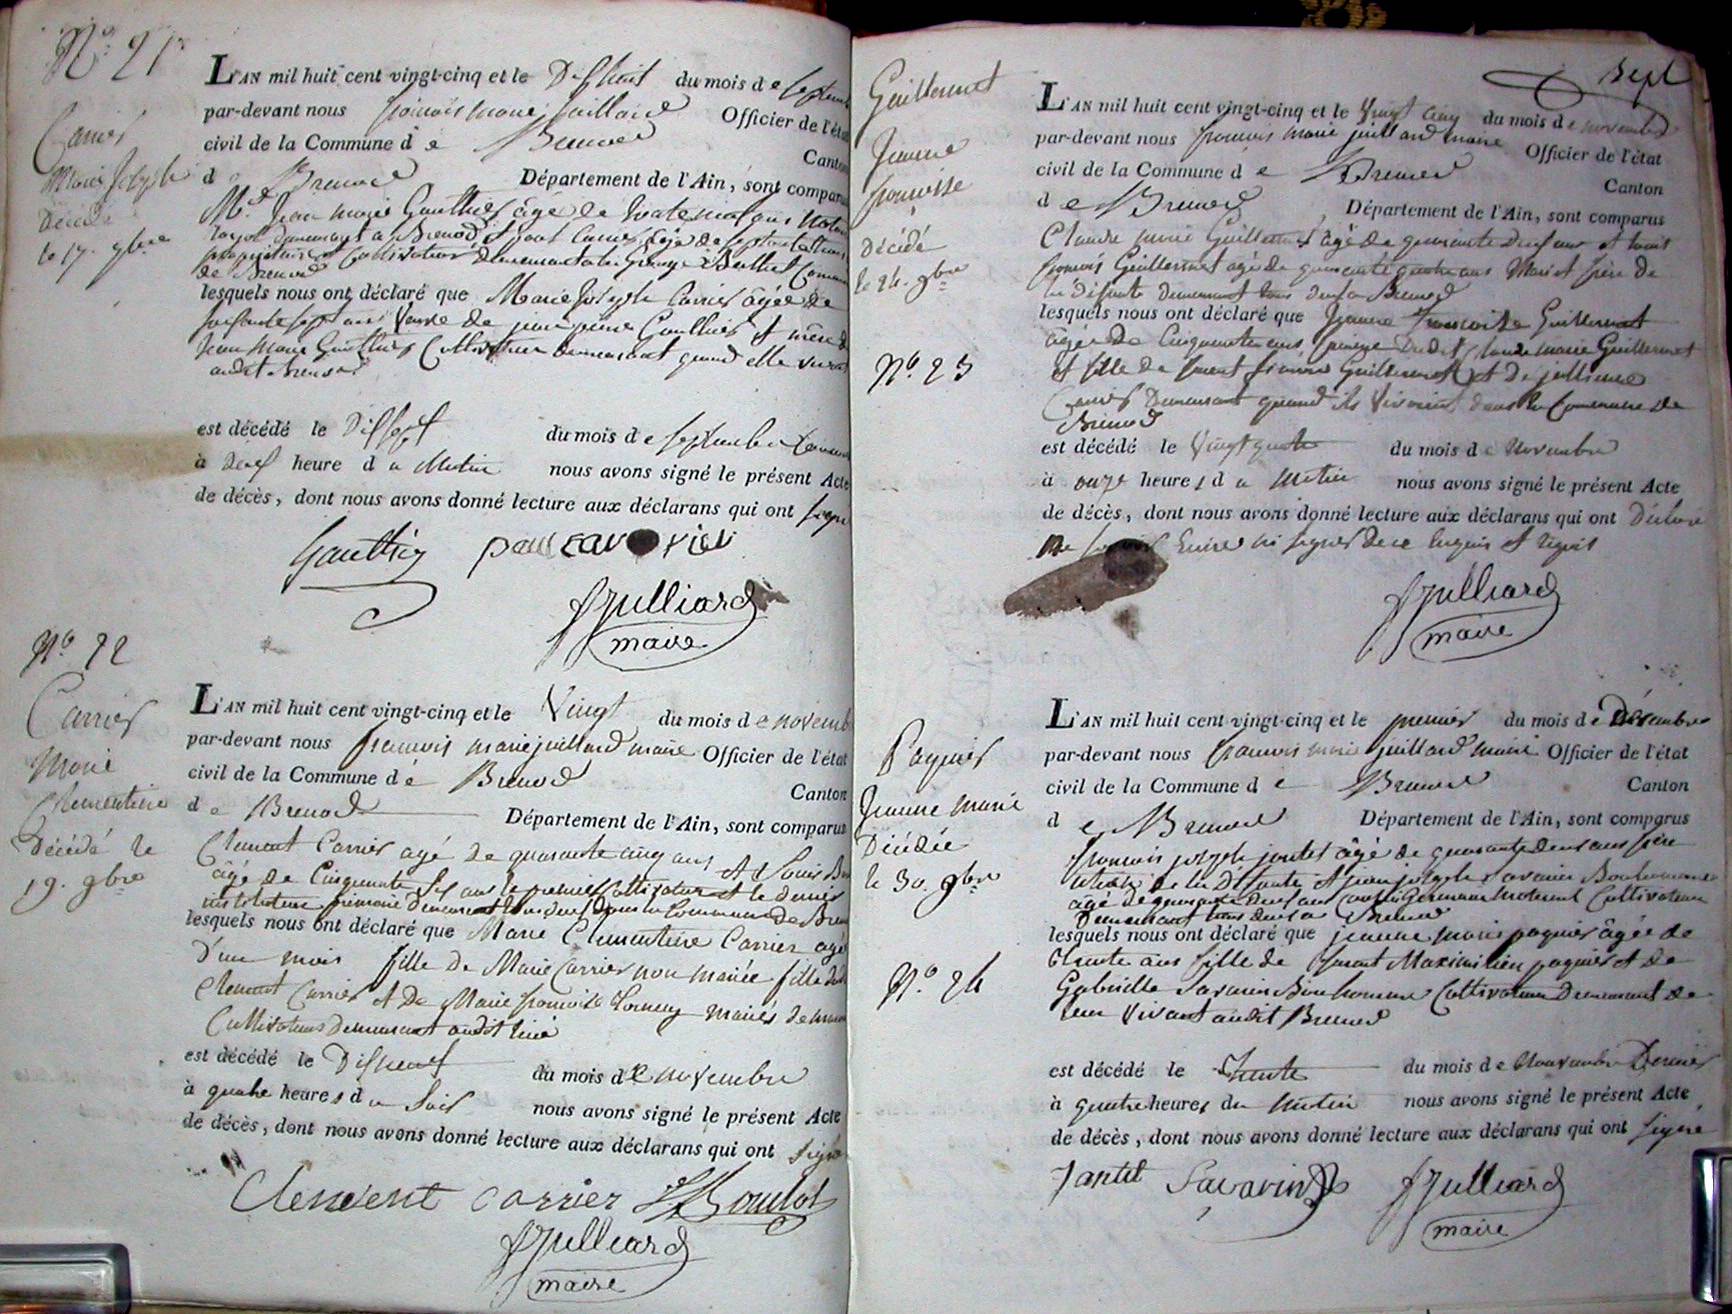 N.° 21
Carrier
Marie Joseph
Décédé
le 17. 7bre
L'AN mil huit cent vingt-cinq et le Dixhuit du mois de septembre
par-devant nous françois marie juillard Officier de l'état
civil de la Commune de Brenod Canton
de Brenod Département de l'Ain, sont comparus
M.r Jean marie Gauthier âgé de trente neuf ans Notaire
royal demeurant a Brenod et paul Carrier âgé de septante
propriétaire Cultivateur demeurant a la Grange Commune
de Brenod
lesquels nous ont déclaré que Marie Joseph Carrier âgée de
soixante sept ans Veuve de jean pierre Gauthier et mère de
Jean Marie Gauthier Cultivatrice demeurant quand elle vivait
audit Brenod
est décédé le Dixsept du mois de septembre courant
à heure du Matin nous avons signé le présent Acte
de décès, dont nous avons donné lecture aux déclarans qui ont signé
Gauthier paul carrier
fJulliard
maire
N.° 22
Carrier
Marie
Clementine
Décédé le
19. 9bre
L'AN mil huit cent vingt-cinq et le Vingt du mois de novembre
par-devant nous francois marie juillard maire Officier de l'état
civil de la Commune de Brenod Canton
de Brenod Département de l'Ain, sont comparus
Clement Carrier agé de quarante cinq ans et Louis
âgé de Cinquante six ans le premier Cultivateur et le dernier
instituteur primaire demeurant tous deux dans la Commune de Brenod
lesquels nous ont déclaré que Marie Clementine Carrier agée
D'un mois fille de Marie Carrier non mariée fille de
Clement Carrier et de Marie françoise mariés
Cultivateurs Demeurant audit lieu
est décédé le Dixneuf du mois de novembre
à quatre heures du Soir nous avons signé le présent Acte
de décès, dont nous avons donné lecture aux déclarans qui ont signé
Clement carrier
fJulliard
maire
Sept
Guillermet
Jeanne
françoise
Décédé
le 24. 9bre
N.° 23
L'AN mil huit cent vingt-cinq et le Vingt Cinq du mois de novembre
par-devant nous francois marie juillard maire Officier de l'état
civil de la Commune de Brenod Canton
de Brenod Département de l'Ain, sont comparus
Claude marie Guillermet âgé de quarante ans et
francois Guillermet agé de quarante quatre ans Mari et frère de
la défunte Demeurant tous deux a Brenod
lesquels nous ont déclaré que Jeanne francoise Guillermet
âgée de Cinquante ans femme Dudit Claude marie Guillermet
et fille de Guillermet et de
Carrier Demeurant quand ils vivaient dans la Commune de
Brenod
est décédé le Vingt quatre du mois de Novembre
à onze heures du Matin nous avons signé le présent Acte
de décès, dont nous avons donné lecture aux déclarans qui ont Déclaré
ne Ecrire ni signer de ce Enquis et requis
fJulliard
maire
Paquier
Jeanne Marie
Décédée
le 30. 9bre
N.° 24
L'AN mil huit cent vingt-cinq et le premier du mois de Décembre
par-devant nous francois marie juillard maire Officier de l'état
civil de la Commune de Brenod Canton
de Brenod Département de l'Ain, sont comparus
francois joseph jantet âgé de quarante deux ans frère
de la Défunte et jean joseph Savarin Bonhomme
agé de quarante ans Cousin Germain maternel Cultivateurs
Demeurant tous deux a Brenod
lesquels nous ont déclaré que jeanne marie paquier âgée de
trente ans fille de Maximilien paquier et de
Gabrielle Savarin Bonhomme Cultivateurs Demeurant de
leur Vivant audit Brenod
est décédé le Trente du mois de Nouvembre Dernier
à quatre heures du Matin nous avons signé le présent Acte
de décès, dont nous avons donné lecture aux déclarans qui ont signé
Jantet Savarin fJulliard
maire